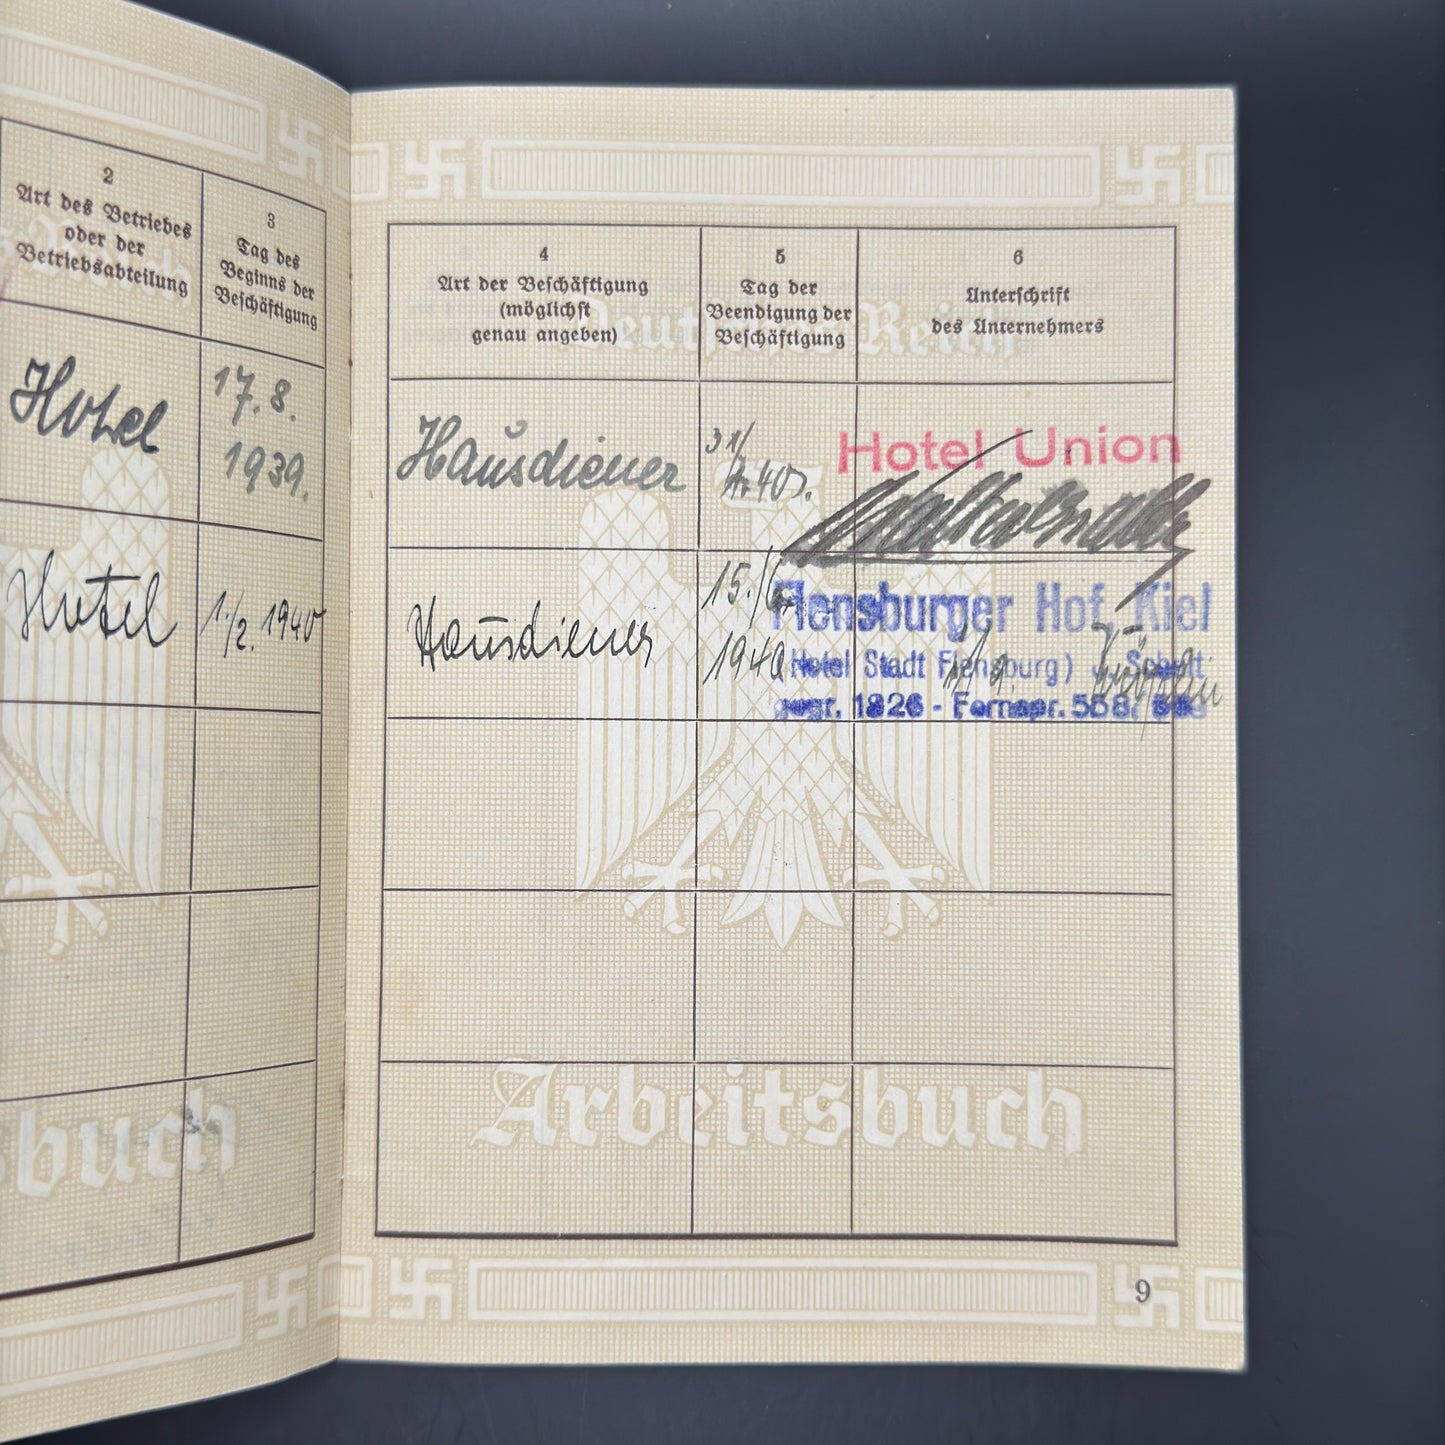 2
Art des Betriebes
oder der
Betriebsabteilung
3
Tag des
Beginns der
Beschäftigung
Hotel
17.8.
1939.
Hotel
1./2. 1940
buch
4
Art der Beschäftigung
(möglichst
genau angeben)
5
Tag der
Beendigung der
Beschäftigung
6
Unterschrift
des Unternehmers
Deutsches Reich
Hausdiener
31/
40.
Hotel Union
Hausdiener
15./6
1940
Flensburger Hof, Kiel
(Hotel Stadt Flensburg)
gegr. 1826 - Fernspr. 558
Arbeitsbuch
9